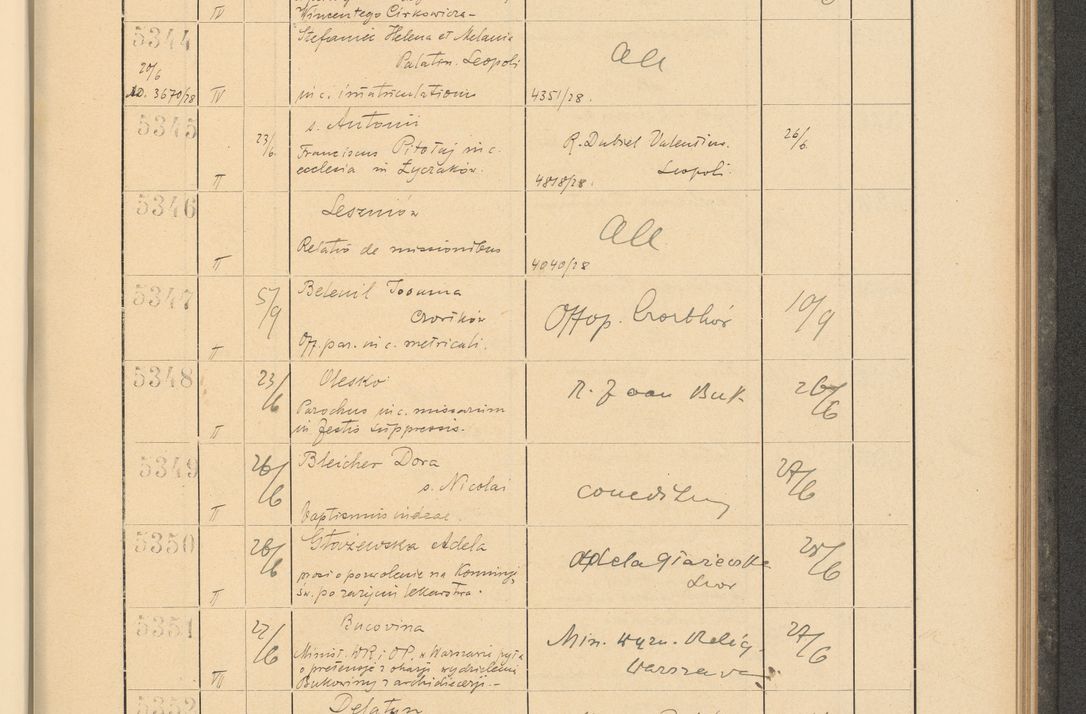 IV
Wincentego Cirkowicza-
5344
20/6
ad. 3670/28
IV
Stefaniei Helena et Melania
Palatin. Leopoli
in c. imatriculationis
aa
4351/28.
5345
II
23/6.
s. Antonii
Franciscus Pitołaj in c.
ecclesia in Łyczaków.
R. Dubiel Valentin.
Leopoli.
4818/28.
26/6.
5346
II
Leszniów
Relatio de missionibus
aa
4040/28
5347
II
5/9
Joanna
Czortków
Off. par. in c. metricali.
Offop. Czortków
10/9
5348
II
23/6
Olesko
Parochus in c. missarum
in festis suppressis.
R. Joan Buk
26/6
5349
II
26/6
Bleicher Dora
s. Nicolai
Baptismus iudaeae.
26/6
5350
II
26/6
Głażewska Adela
prosi o pozwolenie na Komunję
św. po zażyciu lekarstwa.
Adela Głażewska
Lwów
28/6
5351
VII
27/6
Bucovina
Minist. WR i OP. w Warszawie pyta
o pretensje z okazji wydzielenia
Bukowiny z archidiecezji.-
Min. wyzn. Relig.
Warszawa
27/6
5352
Delatyn